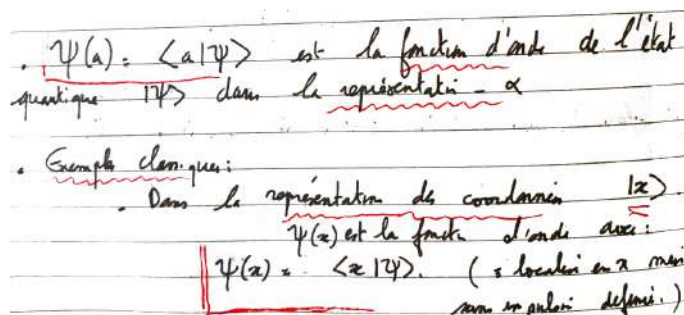 . Ψ(a) = <a|Ψ> est la fonction d'onde de l'état
quantique |Ψ> dans la représentation - α
. Exemples classiques:
. Dans la représentation des coordonnées |x>
Ψ(x) est la fonction d'onde avec:
Ψ(x) = <x|Ψ>. ( localisé en x
sans définie.)